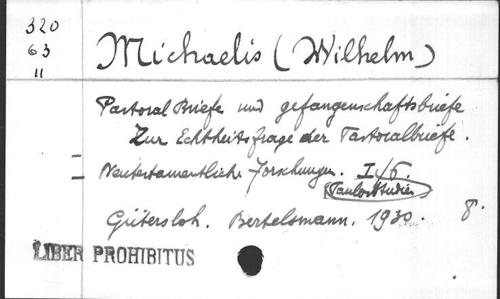 320
63
11
Michaelis (Wilhelm)
Pastoral Briefe und gefangenschaftsbriefe
Zur Echtheitsfrage der Pastoralbriefe.
Neutestamentliche Forschungen. I/6.
(Paulusstudien)
Gütersloh. Bertelsmann. 1930. 8°.
LIBER PROHIBITUS